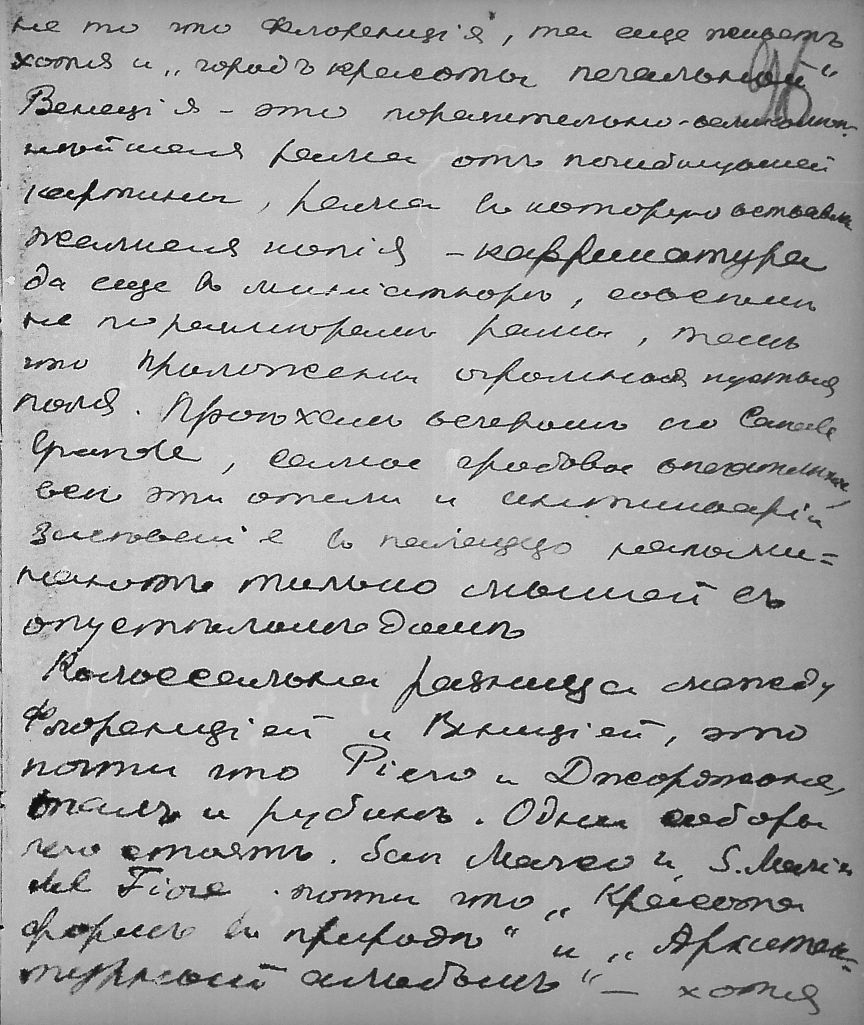 не то что Флоренція, та еще живетъ
хотя и „городъ красоты печальной“
Венеція – это поразительно-великолеп-
нѣйшая рама отъ погибнувшей
картины, рама въ которую вставлена
жалкая копія – каррикатура
да еще въ миніатюрѣ, совсѣмъ
не по размѣрамъ рамы, такъ
что приложены огромныя пустыя
поля. Проѣхали вечеромъ по Canale
Grande, самое гробовое впечатлѣніе,
всѣ эти отели и антикварій
засѣвшіе въ палаццо напоми=
наютъ только мышей въ
опустѣломъ домѣ
Колоссальна разница между
Флоренціей и Венеціей, это
почти что Piero и Джорджоне,
опалъ и рубинъ. Одни соборы
чего стоятъ. San Marco и S. Maria
del Fiore почти что „Красота
формъ въ природѣ“ и „Архитек=
турный альбомъ“ – хотя